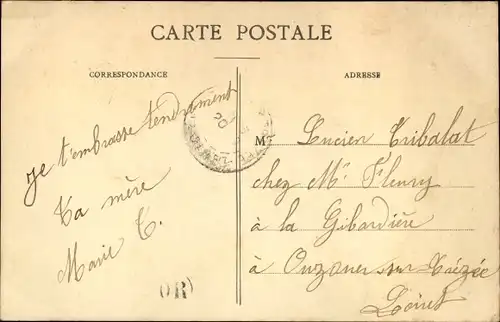 CARTE POSTALE
CORRESPONDANCE
Je t'embrasse tendrement
Ta mère
Marie T.
(OR)
ADRESSE
Mr Lucien Tribalat
chez Mr Fleury
à la Gibardière
à Ouzouer-sur-Trézée
Loiret